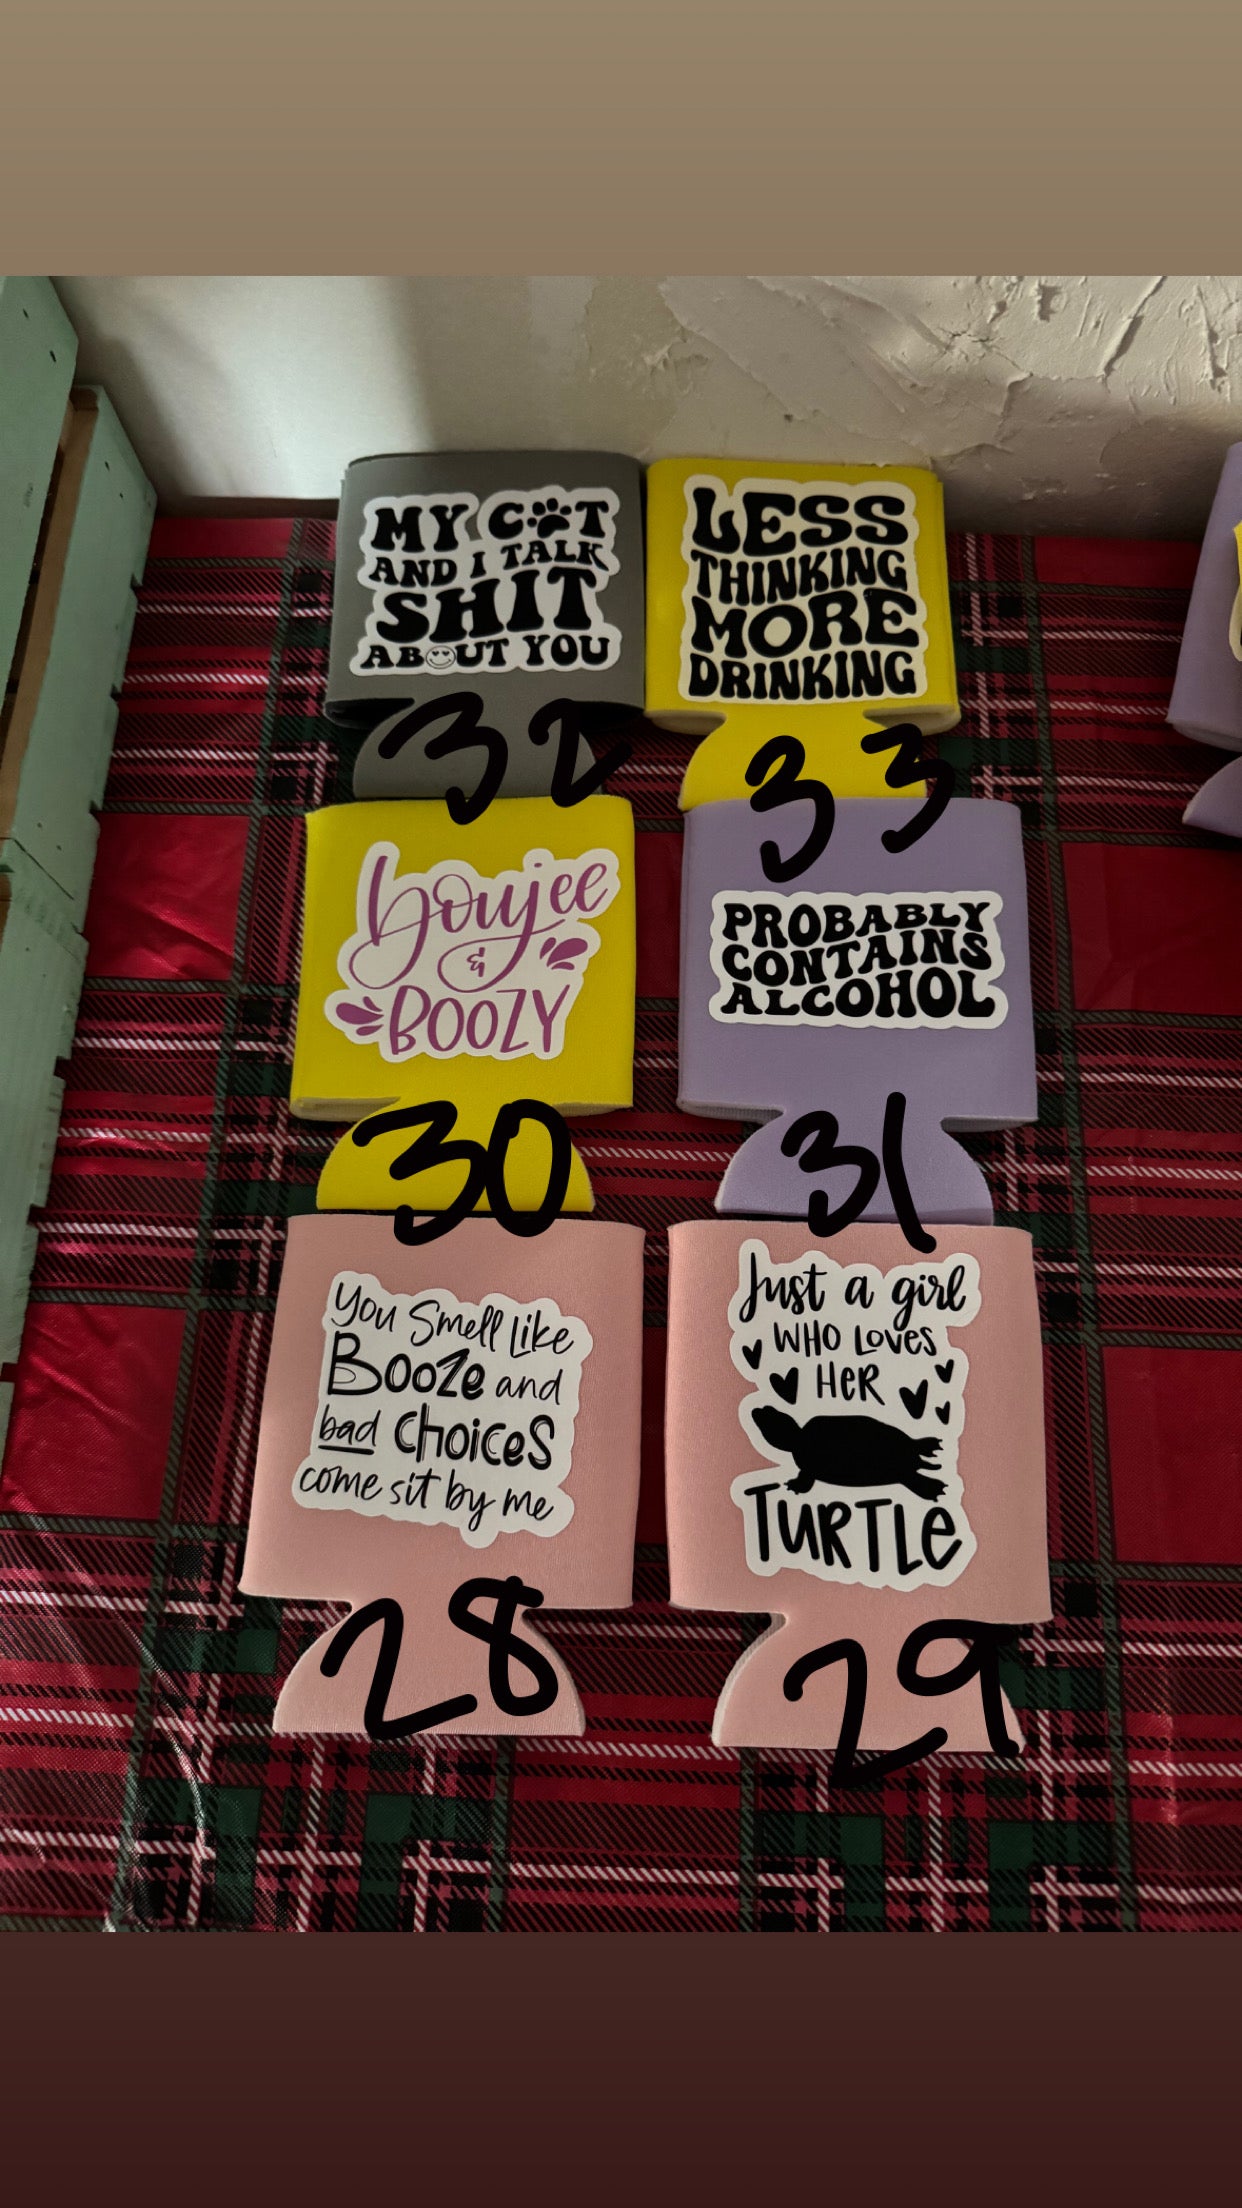 MY CAT
AND I TALK
SHIT
ABOUT YOU
32
LESS
THINKING
MORE
DRINKING
33
boujee
&
BOOZY
30
PROBABLY
CONTAINS
ALCOHOL
31
you Smell Like
Booze and
bad choices
come sit by me
28
Just a girl
WHO LOVES
HER
TURTLE
29